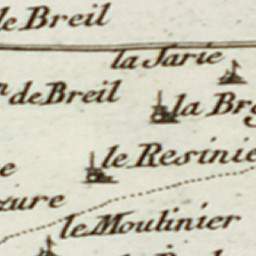 le Breil
la Jarie
de Breil
la Br
le Resinie
e
zure
le Moulinier